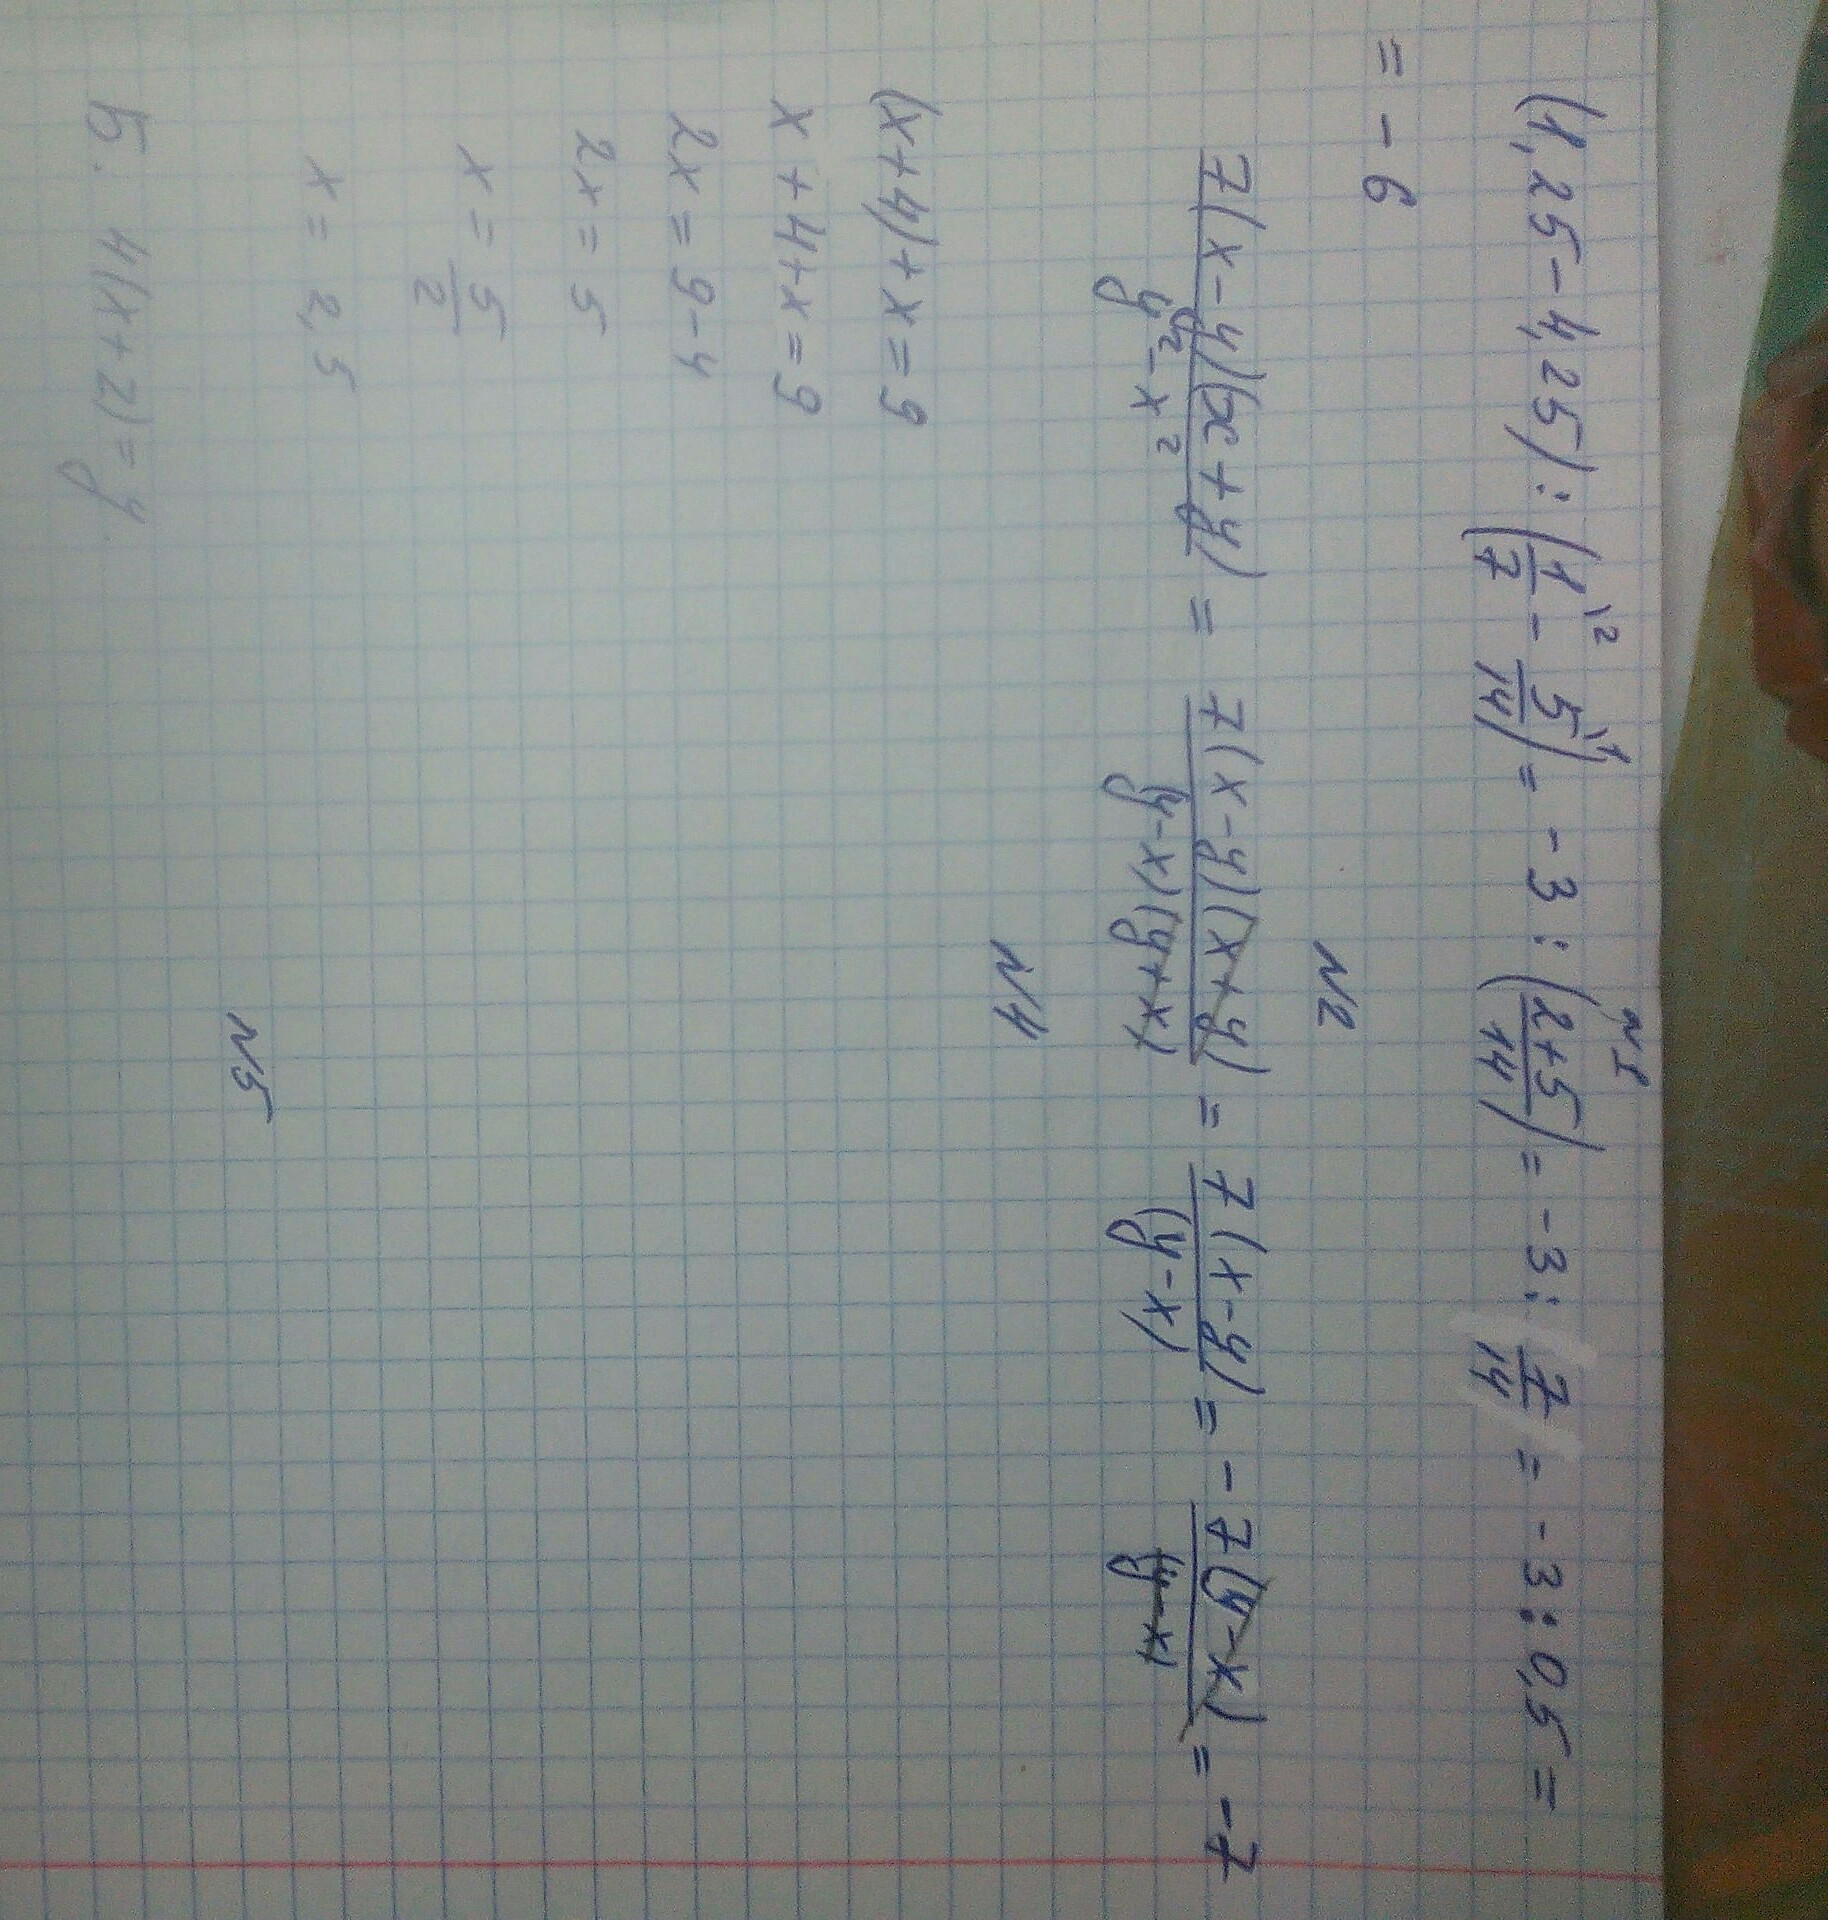 N1
(1,25-4,25):(1/7\2 - 5/14\1) = -3:(2+5/14) = -3:7/14 = -3:0,5 =
= -6
N2
7(x-y)(x+y)/y²-x² = 7(x-y)(x+y)/(y-x)(y+x) = 7(x-y)/(y-x) = -7(y-x)/(y-x) = -7
N4
(x+4)+x=9
x+4+x=9
2x=9-4
2x=5
x=5/2
x=2,5
N5
Б. 4(x+2)=y